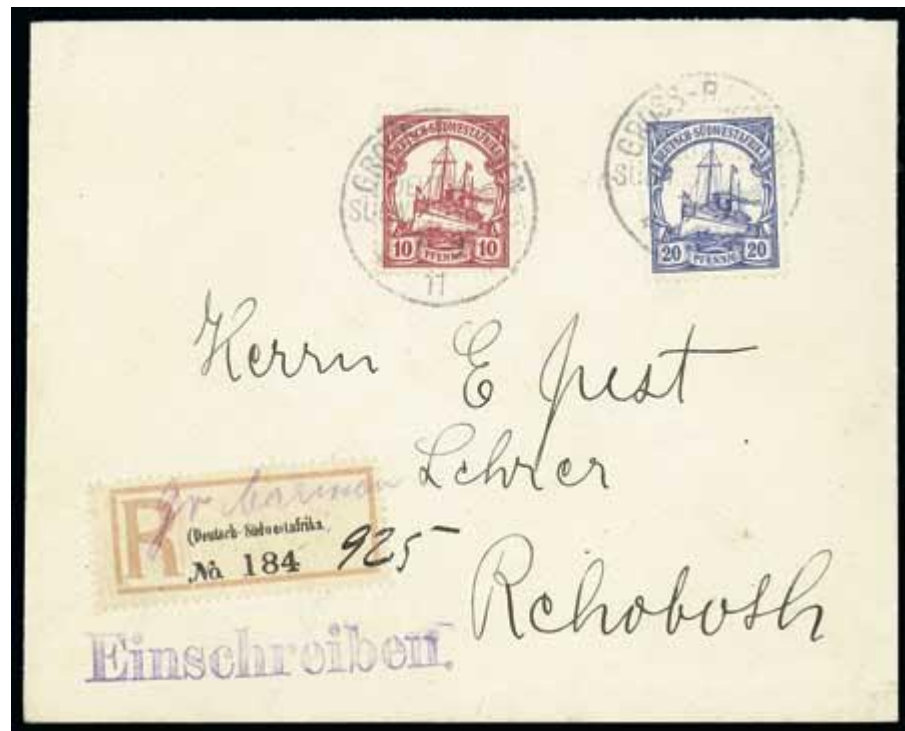 DEUTSCH-SÜDWESTAFRIKA
10 PFENNIG 10
11
DEUTSCH-SÜDWESTAFRIKA
20 PFENNIG 20
GROSS-
Herrn E Jrest
Lehrer
Rehoboth
R
gr Barmen
(Deutsch-Südwestafrika.
No 184
925
Einschreiben.